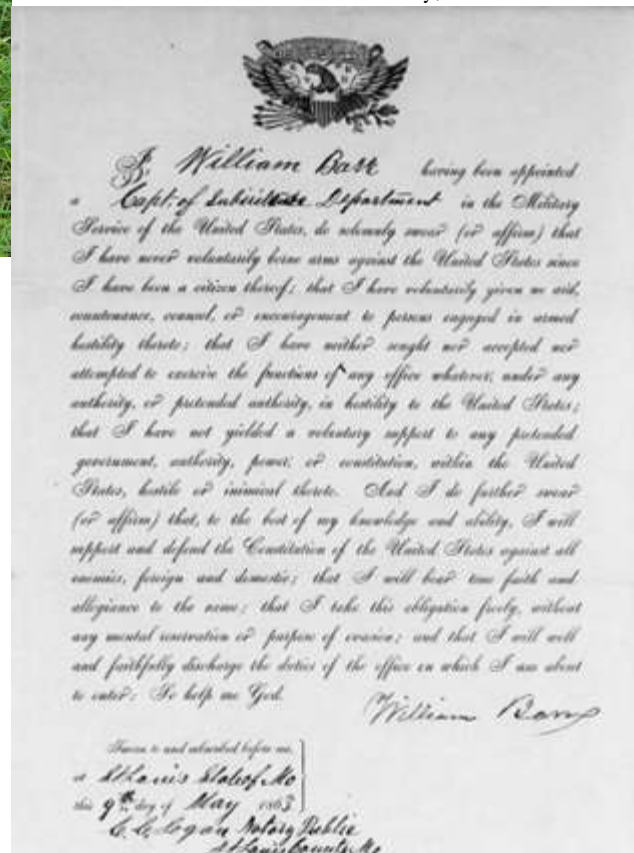 I, William Barr having been appointed
a Capt. of Subsistence Department in the Military
Service of the United States, do solemnly swear (or affirm) that
I have never voluntarily borne arms against the United States since
I have been a citizen thereof; that I have voluntarily given no aid,
countenance, counsel, or encouragement to persons engaged in armed
hostility thereto; that I have neither sought nor accepted nor
attempted to exercise the functions of any office whatever, under any
authority, or pretended authority, in hostility to the United States;
that I have not yielded a voluntary support to any pretended
government, authority, power, or constitution, within the United
States, hostile or inimical thereto. And I do further swear
(or affirm) that, to the best of my knowledge and ability, I will
support and defend the Constitution of the United States against all
enemies, foreign and domestic; that I will bear true faith and
allegiance to the same; that I take this obligation freely, without
any mental reservation or purpose of evasion; and that I will well
and faithfully discharge the duties of the office on which I am about
to enter: So help me God.
William Barr
Sworn to and subscribed before me,
at St Louis State of Mo
this 9th day of May 1863
C. C. Cogan Notary Public
St Louis County Mo